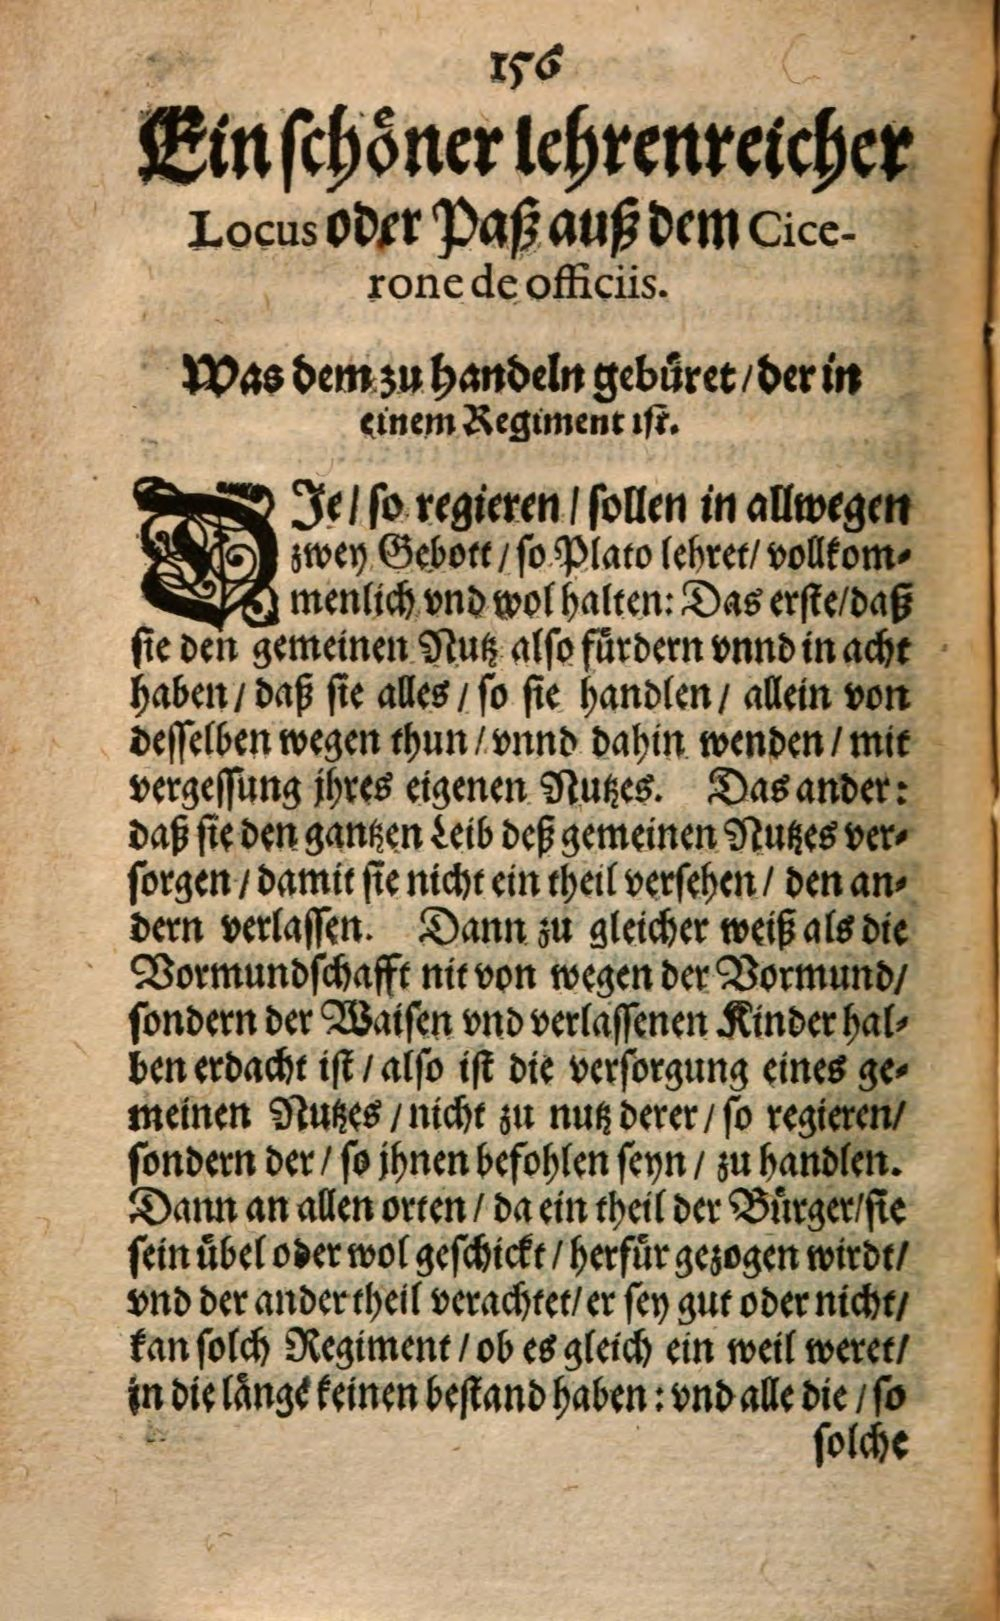 156
Ein schöner lehrenreicher
Locus oder Paß auß dem Cice-
rone de officiis.
Was dem zu handeln gebüret / der in
einem Regiment ist.
DIe / so regieren / sollen in allwegen
zwey Gebott / so Plato lehret / vollkom-
menlich vnd wol halten: Das erste / daß
sie den gemeinen Nutz also fürdern vnnd in acht
haben / daß sie alles / so sie handlen / allein von
desselben wegen thun / vnnd dahin wenden / mit
vergessung jhres eigenen Nutzes. Das ander:
daß sie den gantzen Leib deß gemeinen Nutzes ver-
sorgen / damit sie nicht ein theil versehen / den an-
dern verlassen. Dann zu gleicher weiß als die
Vormundschafft nit von wegen der Vormund /
sondern der Waisen vnd verlassenen Kinder hal-
ben erdacht ist / also ist die versorgung eines ge-
meinen Nutzes / nicht zu nutz derer / so regieren /
sondern der / so jhnen befohlen seyn / zu handlen.
Dann an allen orten / da ein theil der Bürger / sie
sein übel oder wol geschickt / herfür gezogen wirdt /
vnd der ander theil verachtet / er sey gut oder nicht /
kan solch Regiment / ob es gleich ein weil weret /
in die länge keinen bestand haben: vnd alle die / so
solche